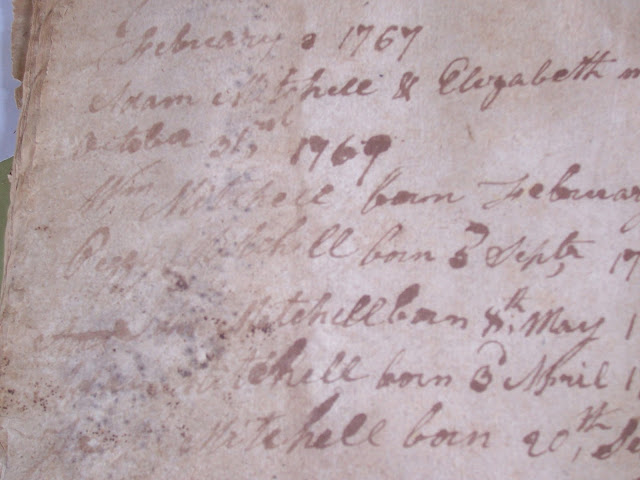 February 1767
Adam Mitchell & Elizabeth m
October 31, 1769
Wm Mitchell born February
Mitchell born 3d Septr, 17
Mitchell born 8th, May 1
Mitchell born 3d April 1
Mitchell born 20th, Se